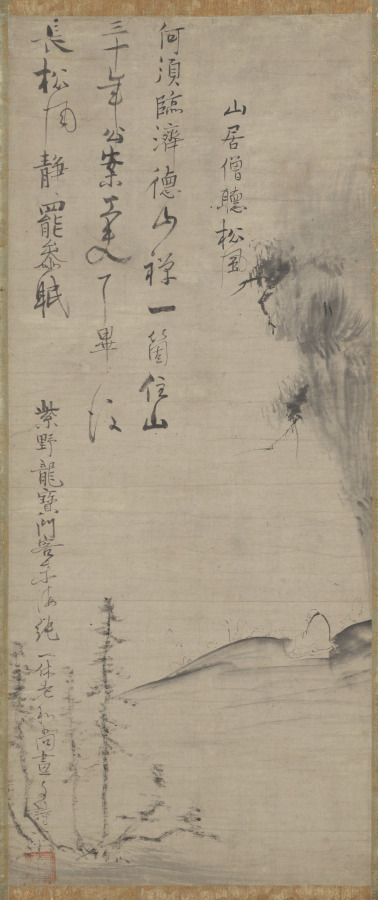 山居僧聽松風
何須臨濟德山禅一箇住山
三十年公案了畢後
長松風静罷参眠
紫野龍寶門客東海純一休老和尚畫